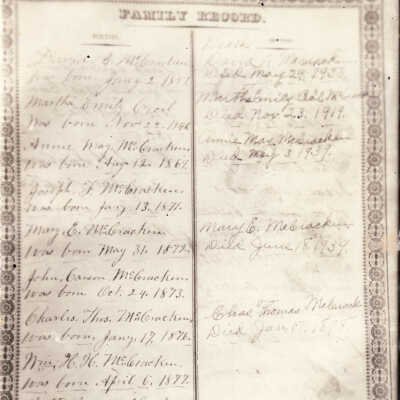 FAMILY RECORD.
BIRTHS.
David McCracken
was born Jany 2.
Martha Emily
was born Nov 22.
Annie May McCracken
was born Aug 12. 1869.
Joseph F McCracken
was born Jany 13. 1871.
Mary E. McCracken
was born May 31. 1872.
John Carson McCracken
was born Oct. 24. 1873.
Charles Thos. McCracken
was born. Jany. 17. 1876.
Wm. H. H. McCracken
was born April 6. 1877.
David
Died May 29.
Martha Emily
Died Nov 23. 1919.
Annie May McCracken
Died May 3 1939.
Mary E. McCracken
Died June 1939.
Chas Thomas McCracken
Died Jan